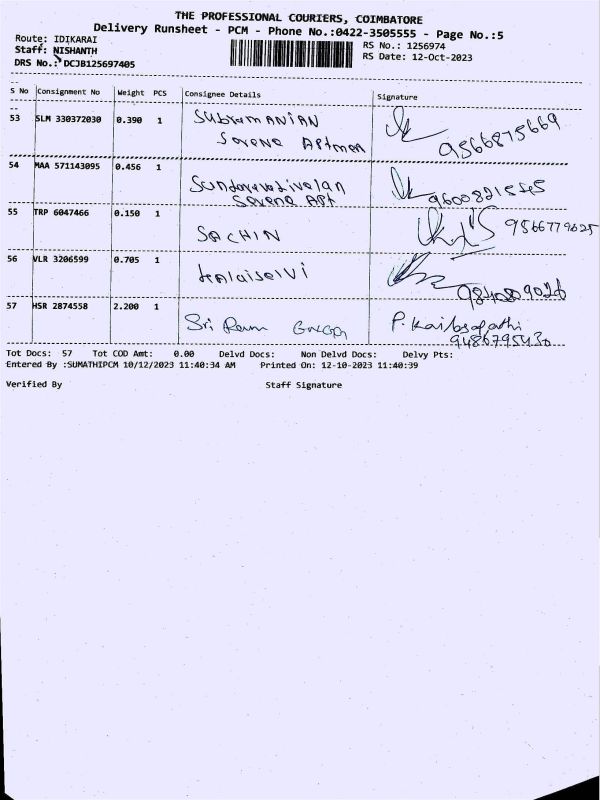 THE PROFESSIONAL COURIERS, COIMBATORE
Delivery Runsheet - PCM - Phone No.:0422-3505555 - Page No.:5
Route: IDIKARAI
Staff: NISHANTH
DRS No.: DCJB125697405
RS No.: 1256974
RS Date: 12-Oct-2023
S No Consignment No Weight PCS Consignee Details Signature
53 SLM 330372030 0.390 1 SubramANIAN
Serene APtmen 9566875669
54 MAA 571143095 0.456 1
Serene APt
55 TRP 6047466 0.150 1 SACHIN 9566779625
56 VLR 3206599 0.705 1 kalaiselvi
57 HSR 2874558 2.200 1 Sri Ram P.
9486795430
Tot Docs: 57 Tot COD Amt: 0.00 Delvd Docs: Non Delvd Docs: Delvy Pts:
Entered By :SUMATHIPCM 10/12/2023 11:40:34 AM Printed On: 12-10-2023 11:40:39
Verified By Staff Signature